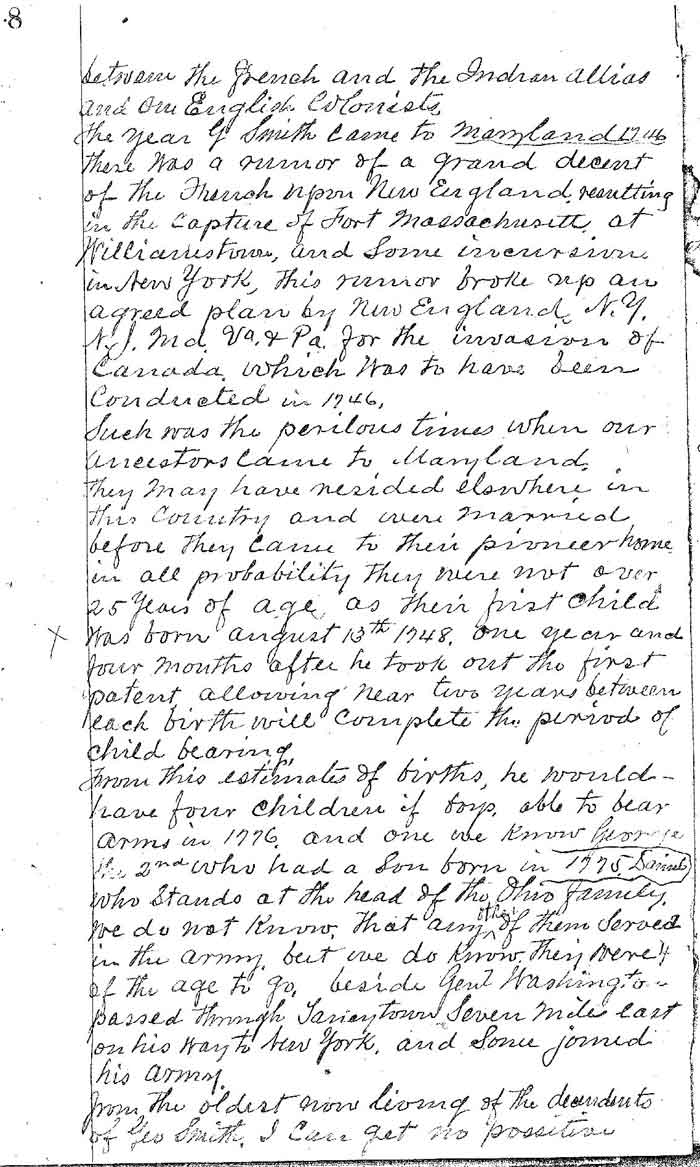 8
between the French and the Indian allias
and our English Colonists,
the year G Smith came to Maryland 1746
there was a rumor of a grand decent
of the French upon New England, resulting
in the Capture of Fort Massachusett, at
Williamstown, and Some incursions
in New York, this rumor broke up an
agreed plan by New England, N.Y.
N.J. Md. Va. & Pa. for the invasion of
Canada. which was to have been
Conducted in 1746,
Such was the perilous times when our
ancestors came to Maryland.
they may have resided elswhere in
this Country and were married
before they came to their pioneer home
in all probability they were not over
25 years of age, as their first child
X was born august 13th 1748. one year and
four months after he took out the first
patent allowing near two years between
each birth will complete the period of
child bearing,
from this estimates of births, he would-
have four children if boys, able to bear
arms in 1776. and one we know George
the 2nd who had a Son born in 1775 Daniel
who stands at the head of the Ohio family.
we do not know, that any other of them served
in the army, but we do know, they were
of the age to go, beside Genl Washington-
passed through Taneytown Seven miles east
on his way to New York, and Some joined
his army.
from the oldest now living of the decendents
of Geo Smith, I can get no possitive